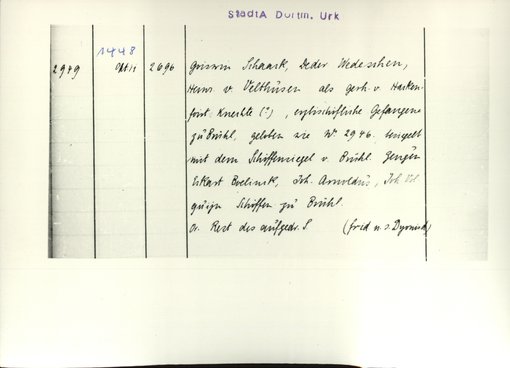 StadtA Dortm. Urk
1448
2979 Okt 11 2696 Goiswin Schaark, Deder Wedesschen,
Herm. v. Velthusen als gesch. v. Harken-
fort. Knechte (?), erzbischöfliche Gefangene
zu Brühl, geloben wie Nr 2946. Umgelt
mit dem Schöffensiegel v. Brühl. Zeugen
Eckart Joh. Arnoldus, Joh Vol
quijn Schöffen zu Brühl.
Or. Rest des aufgedr. S. (frid n. s.